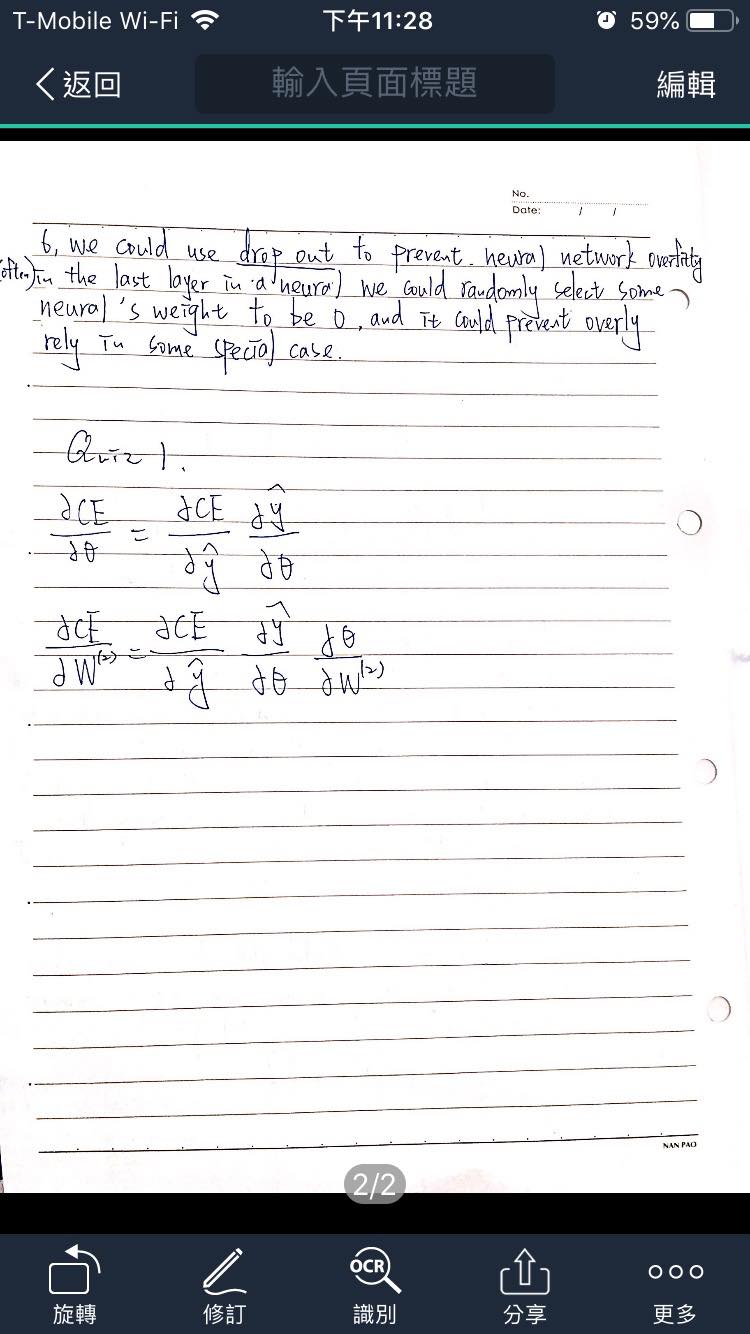 T-Mobile Wi-Fi 下午11:28 59%
返回 輸入頁面標題 編輯
No.
Date: / /
6, we could use drop out to prevent neural network overfitg
(often) in the last layer in a neural) we could randomly select some
neural's weight to be 0, and it could prevent overly
rely in some special case.
Quiz 1.
∂CE/∂θ = ∂CE/∂ŷ ∂ŷ/∂θ
∂CE/∂W⁽²⁾ = ∂CE/∂ŷ ∂ŷ/∂θ ∂θ/∂W⁽²⁾
NAN PAO
2/2
OCR
旋轉 修訂 識別 分享 更多